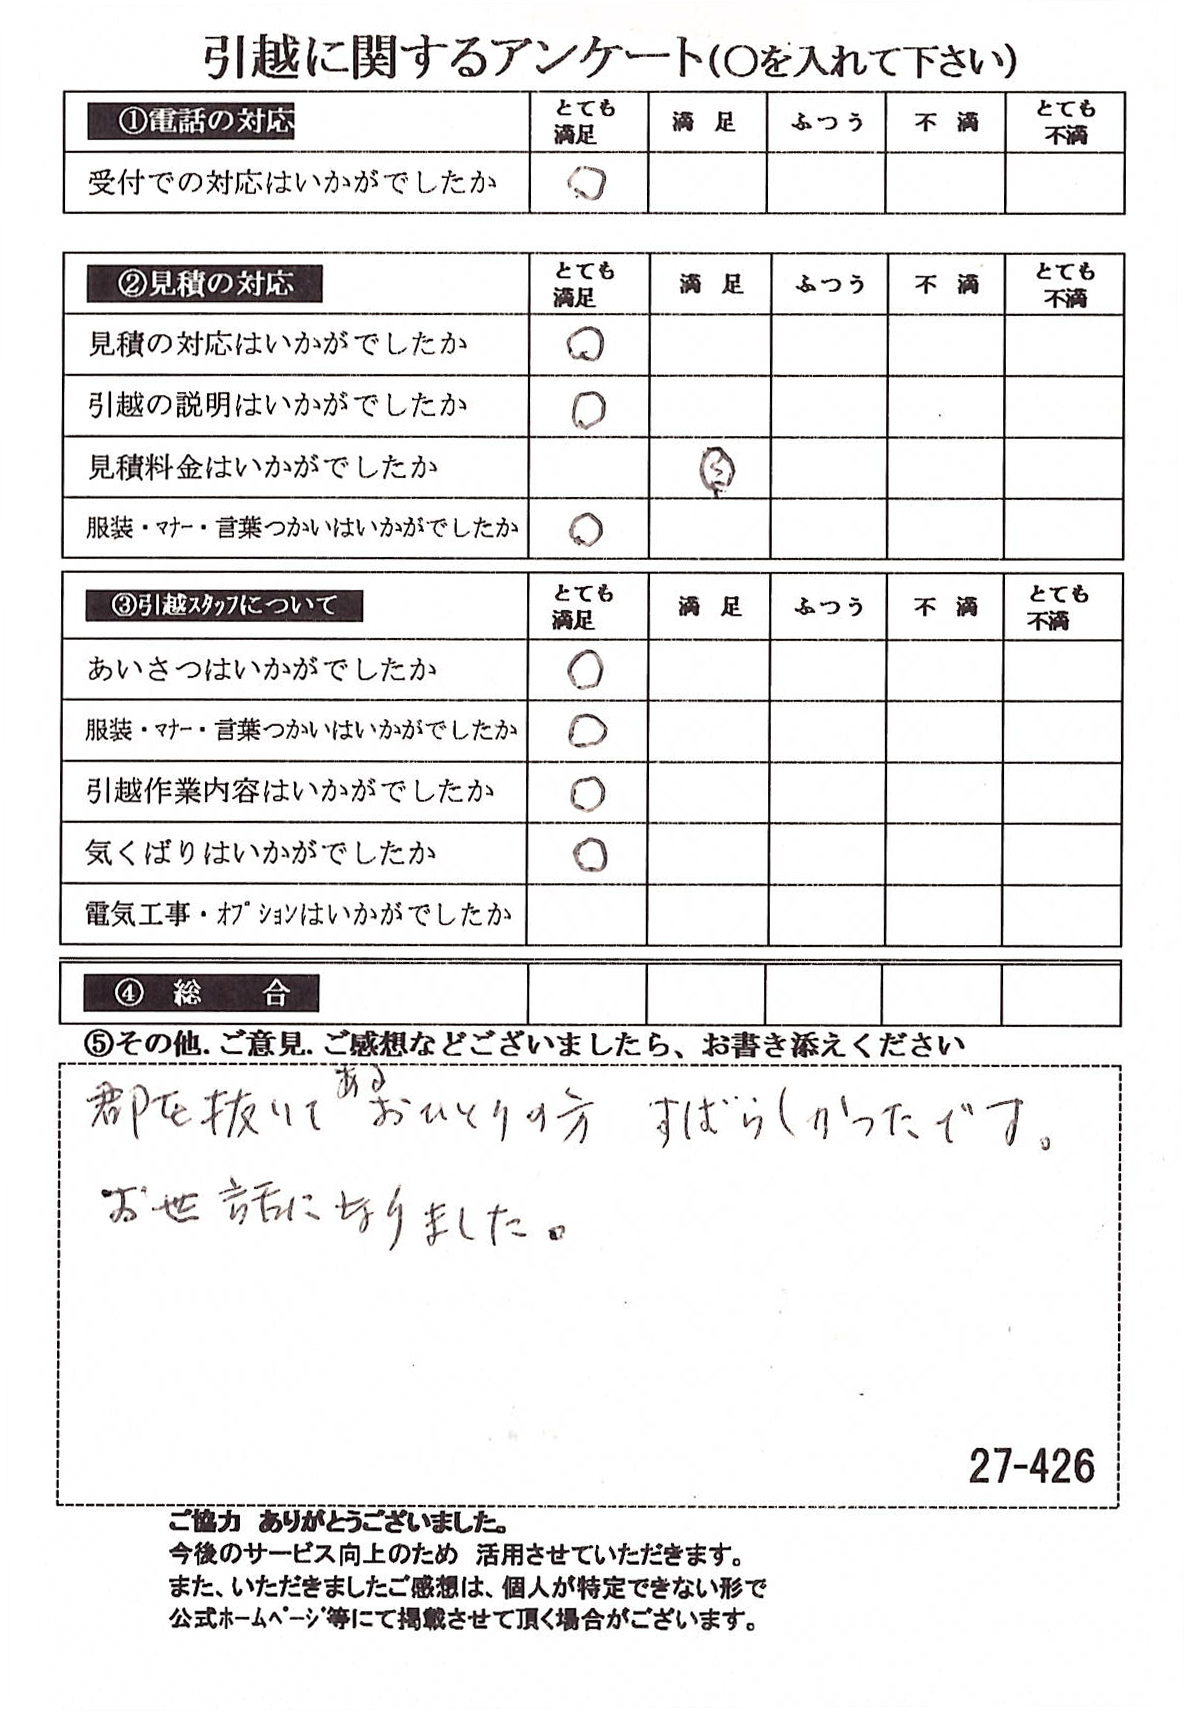 引越に関するアンケート(〇を入れて下さい)
①電話の対応 とても満足 満足 ふつう 不満 とても不満
受付での対応はいかがでしたか ○
②見積の対応 とても満足 満足 ふつう 不満 とても不満
見積の対応はいかがでしたか ○
引越の説明はいかがでしたか ○
見積料金はいかがでしたか ○
服装・マナー・言葉つかいはいかがでしたか ○
③引越スタッフについて とても満足 満足 ふつう 不満 とても不満
あいさつはいかがでしたか ○
服装・マナー・言葉つかいはいかがでしたか ○
引越作業内容はいかがでしたか ○
気くばりはいかがでしたか ○
電気工事・オプションはいかがでしたか
④ 総 合
⑤その他.ご意見.ご感想などございましたら、お書き添えください
群を抜いて あるおひとりの方 すばらしかったです。
お世話になりました。
27-426
ご協力 ありがとうございました。
今後のサービス向上のため 活用させていただきます。
また、いただきましたご感想は、個人が特定できない形で
公式ホームページ等にて掲載させて頂く場合がございます。